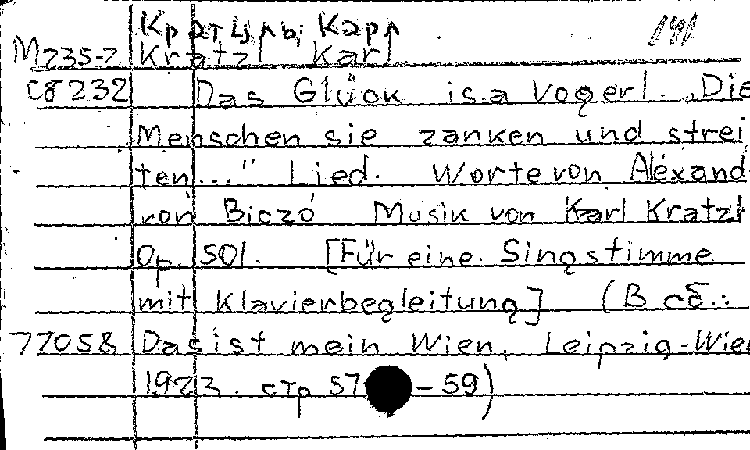 Кратцль, Карл
М235-2 Kratzl Karl
C8232 Das Glück is a Vogerl. „Die
Menschen sie zanken und strei
ten..." Lied. Worte von Alexand
von Biczó Musik von Karl Kratzl
Op. 501. [Für eine Singstimme
mit Klavierbegleitung] (В сб.:
77058 Das ist mein Wien, Leipzig-Wien
1923. стр 57 - 59)